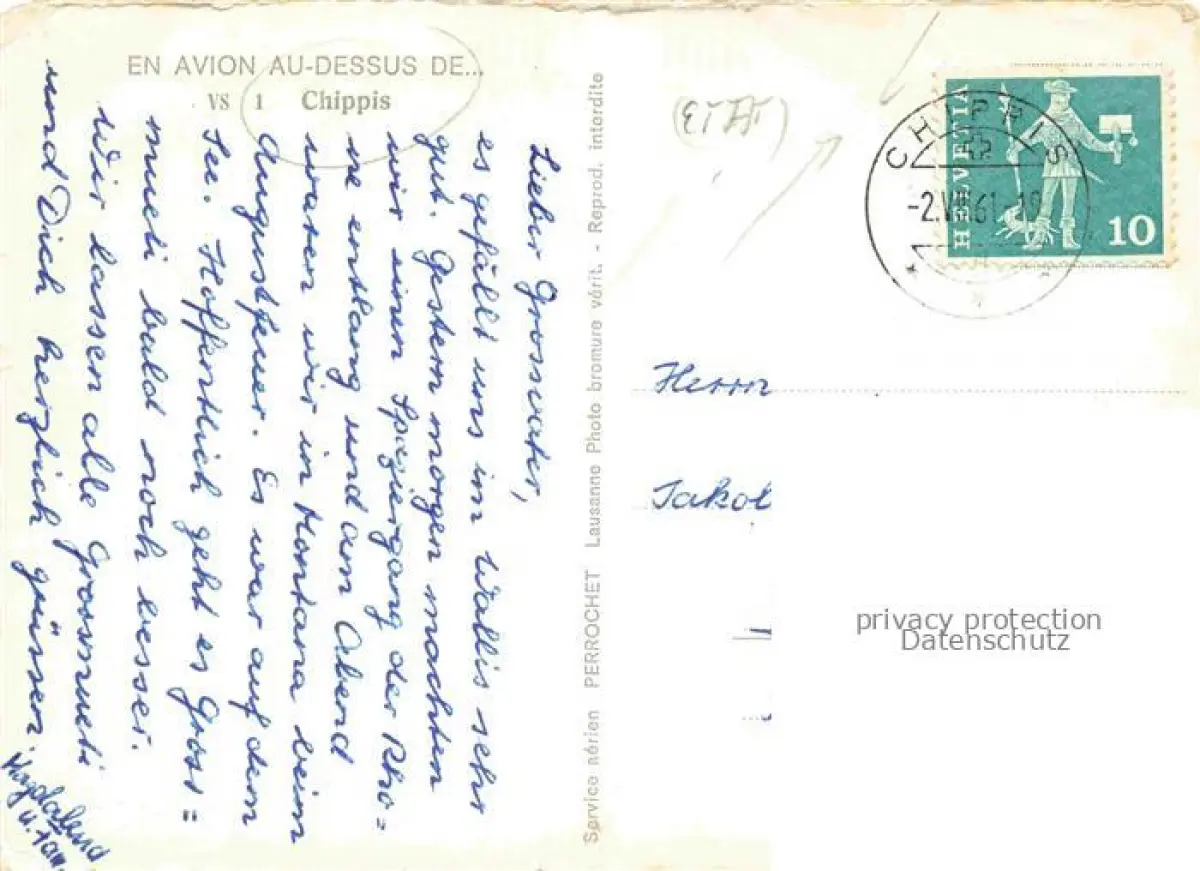 EN AVION AU-DESSUS DE...
VS 1 Chippis
Lieber Grossvater,
es gefällt uns im Wallis sehr
gut. Gestern morgen machten
wir einen Spaziergang der Rho=
ne entlang und am Abend
waren wir in Montana beim
Augustfeuer. Es war auf dem
See. Hoffentlich geht es Gross=
mueti bald noch besser.
Wir lassen alle Grossmueti
und Dich herzlich grüssen.
Magdalena
u. Fam.
Service aérien PERROCHET Lausanne Photo bromure vérit. - Reprod. interdite
CHIPPIS
-2.VIII.61-
HELVETIA
10
Herrn
Jakob
privacy protection
Datenschutz